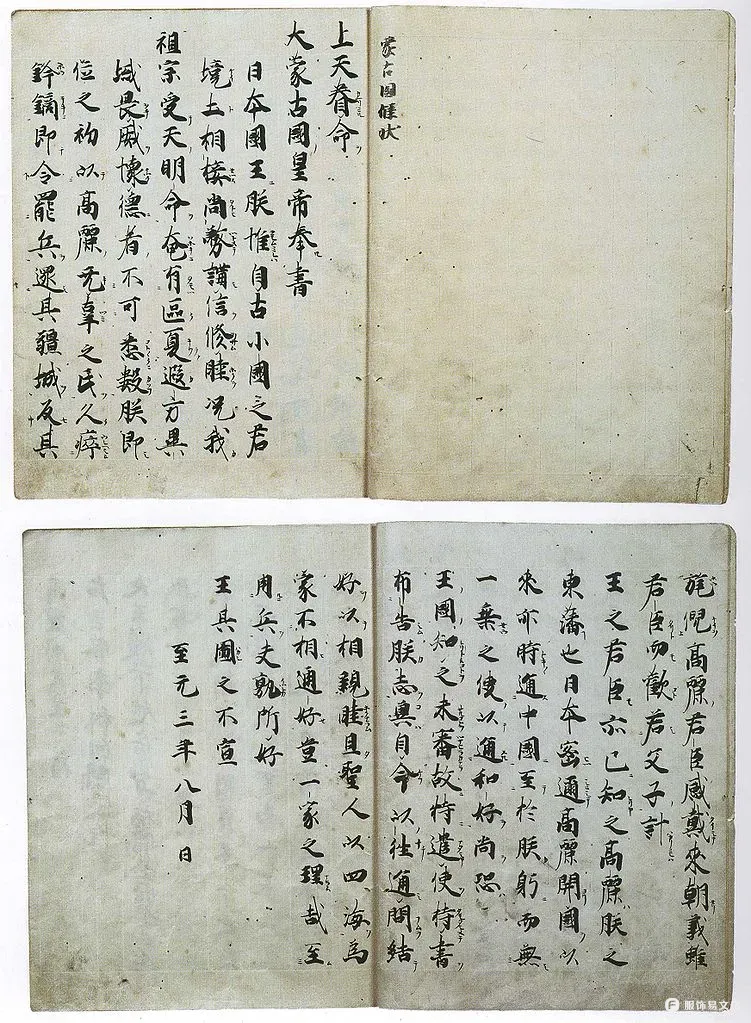 蒙古國牒状
上天眷命
大蒙古國皇帝奉書
日本國王朕惟自古小國之君
境土相接尚務講信修睦况我
祖宗受天明命奄有區夏遐方異
域畏威懷德者不可悉數朕即
位之初以高麗无辜之民久瘁
鋒鏑即令罷兵還其疆城反其
旄倪高麗君臣感戴來朝義雖
君臣而歡若父子計
王之君臣亦已知之高麗朕之
東藩也日本密邇高麗開國以
來亦時通中國至於朕躬而無
一乘之使以通和好尚恐
王國知之未審故特遣使持書
布告朕志冀自今以往通問結
好以相親睦且聖人以四海為
家不相通好豈一家之理哉至
用兵夫孰所好
王其圖之不宣
至元三年八月日
服饰易文